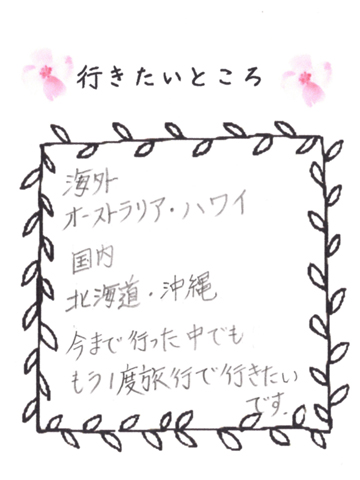 行きたいところ
海外
オーストラリア・ハワイ
国内
北海道・沖縄
今まで行った中でも
もう1度旅行で行きたい
です.